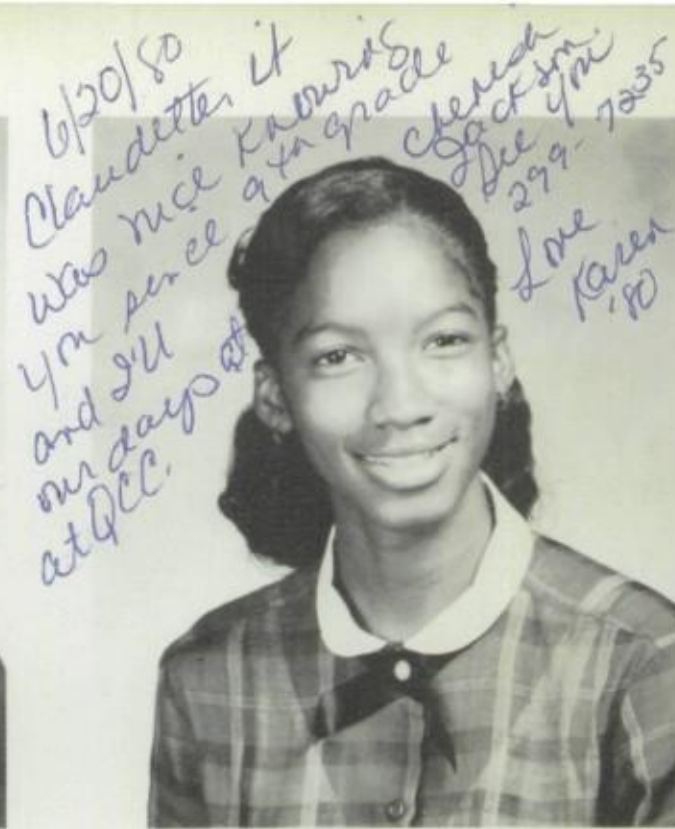 6/20/80
Claudette, it
was nice knowing
you sence 9th grade
and I'll cherish
our days at Jackson.
See you
at QCC.
299-7235
Love
Karen
'80